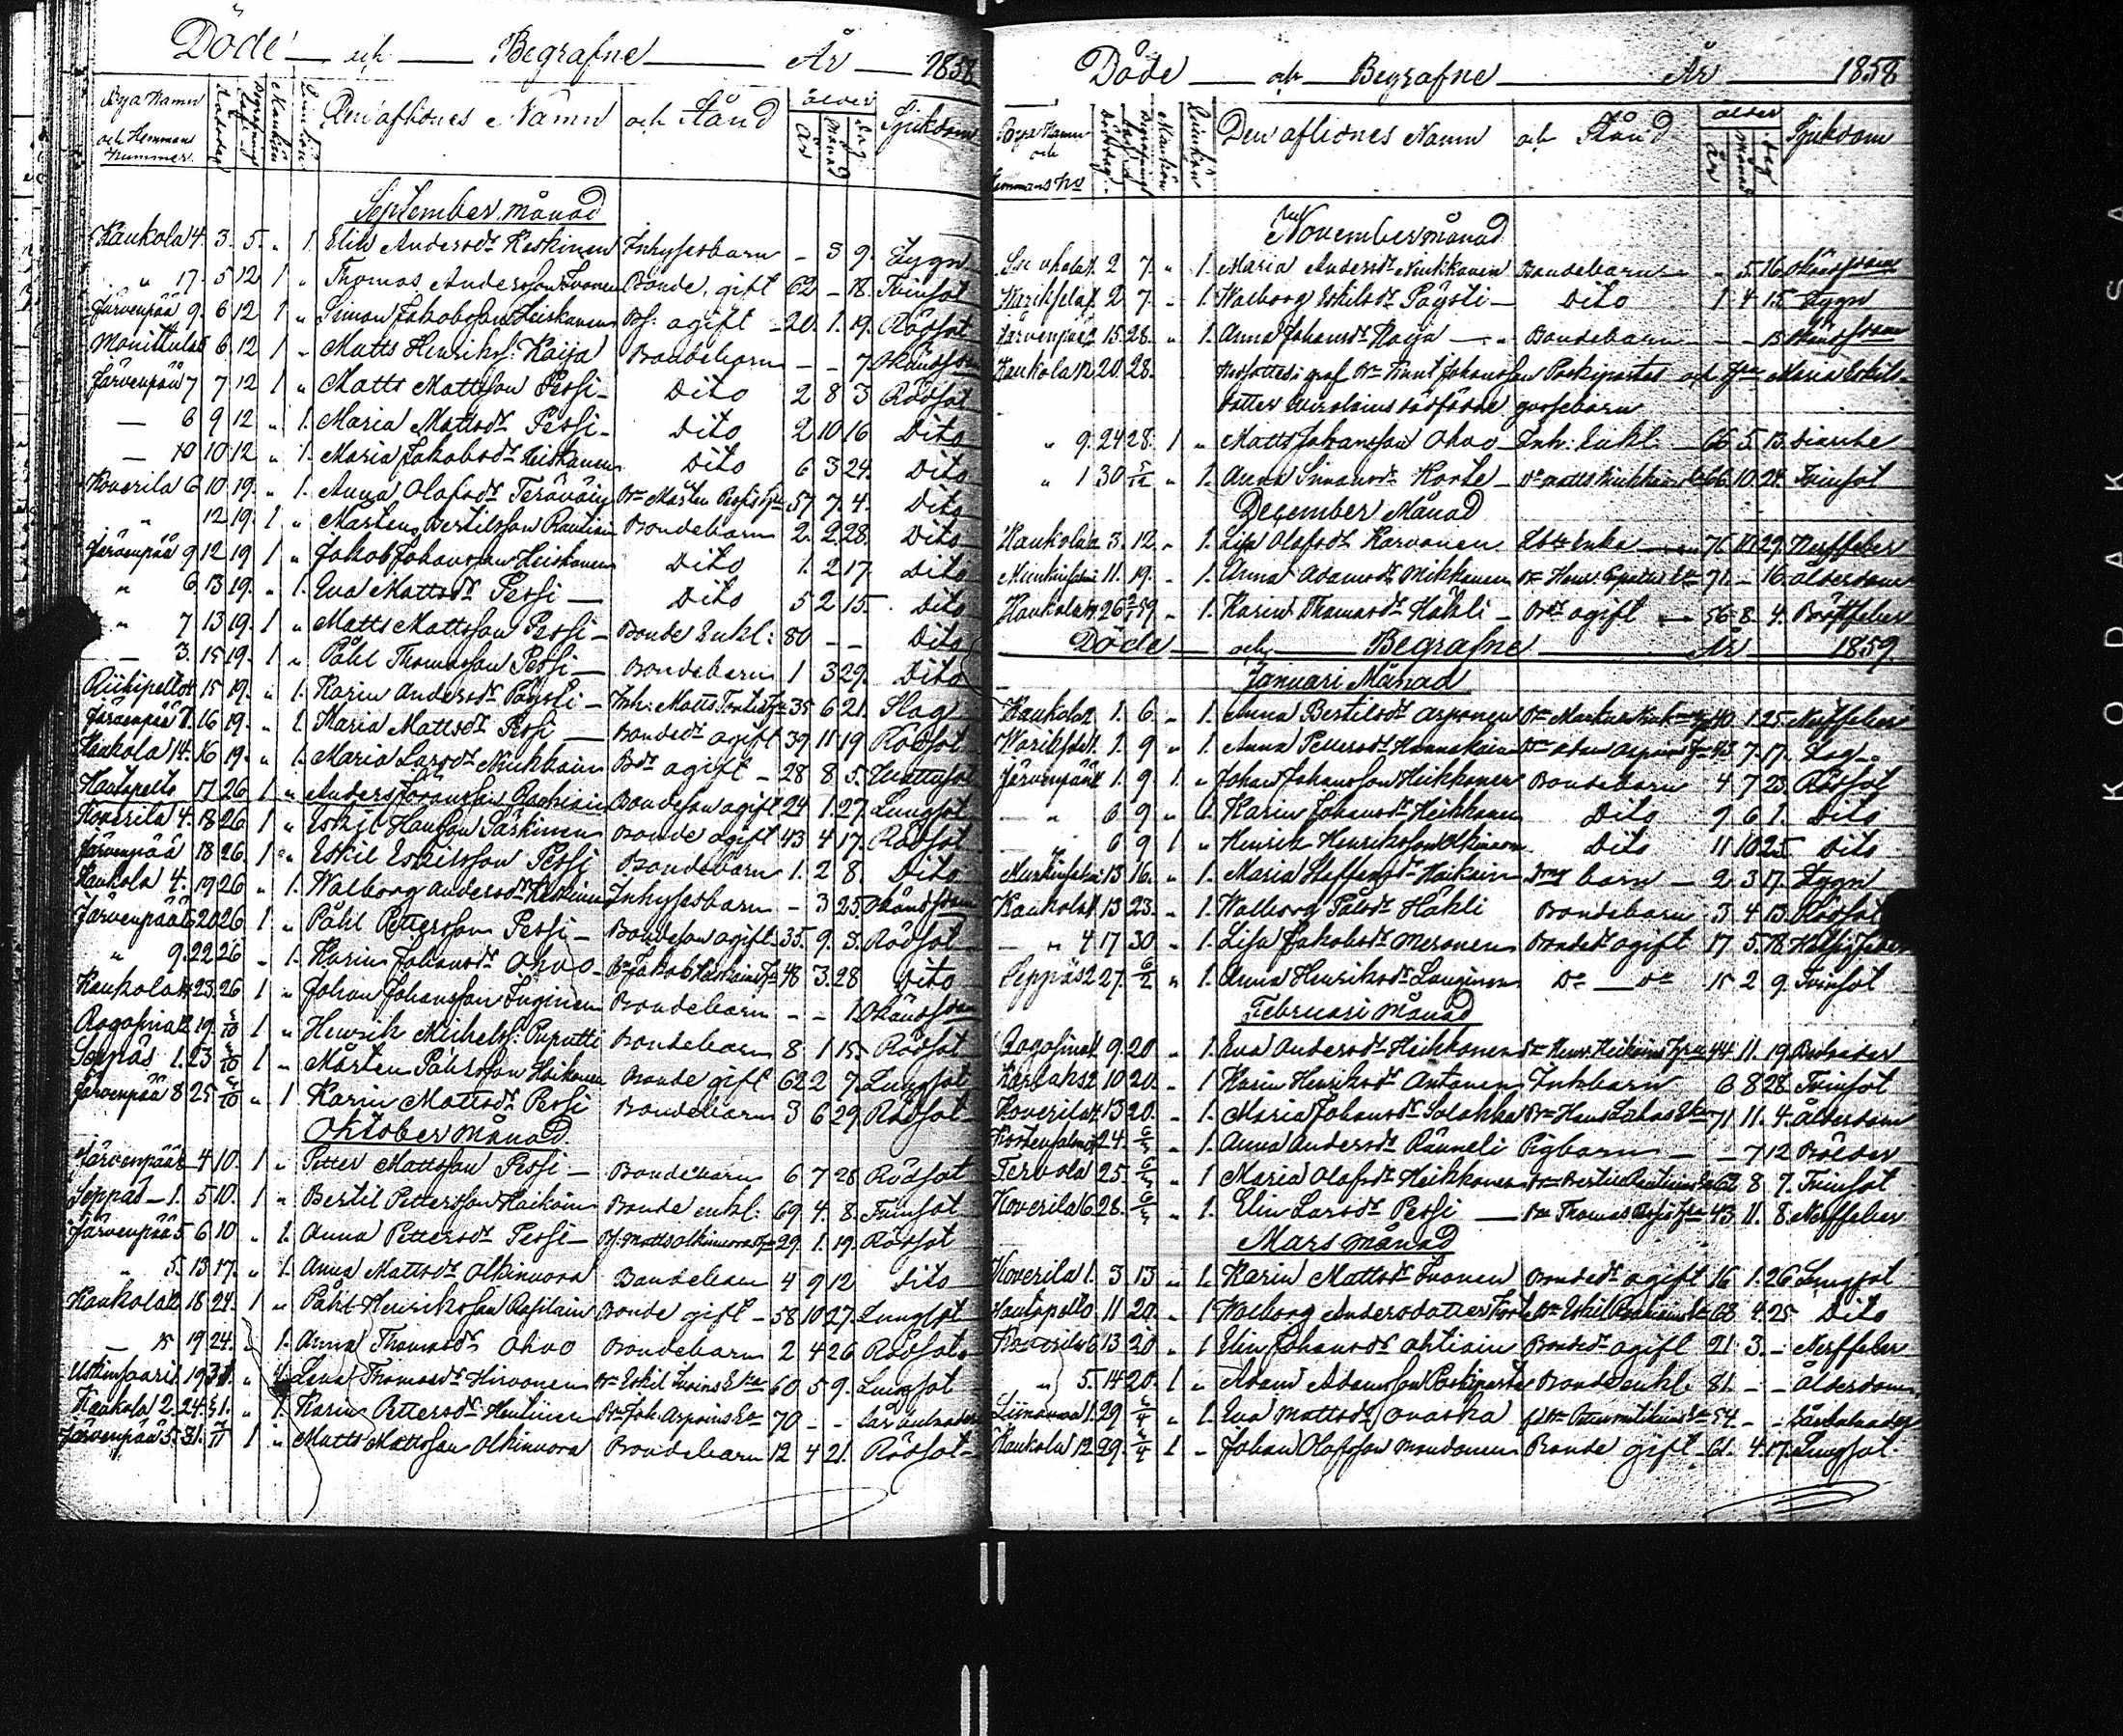 Döde och Begrafne År 1858
Bya Namn och Hemmans Nummer. Dödsdag Begrafningsdag Mankön Qvinkön Den aflidnes Namn och Stånd ålder År Månad Dag Sjukdom
September månad
Kaukola 4. 3. 5. " 1. Elin Andersdr Keskinen Inhysesbarn - 3 9. Lygn
" 17. 5 12 1 " Thomas Andersson Ivonen Bonde, gift 62 - 18. Tvinsot
Järvenpää 9. 6 12 1 " Simon Jakobsson Heiskanen Bs: ogift - 20. 1. 19. Rödsot
6 12 1 " Matts Henrikss: Kaija Bondebarn - - 7 Okänd sjukdom
Järvenpää 7 7 12 1 " Matts Mattsson Pessi - Dito 2 8 3 Rödsot
— 6 9 12 " 1. Maria Mattsdr Pessi - Dito 2 10 16 Dito
— 10 10 12 " 1. Maria Jakobsdr Heiskanen Dito 6 3 24. Dito
Koverila 6 10. 19. " 1. Anna Olofsdr Teräväin Bn Mårten Pessis Hu 57 7 4. Dito
" 12 19. 1 " Mårten Bertilsson Rautiain Bondebarn 2. 2 28. Dito
Järvenpää 9 12 19 1 " Jakob Johansson Heiskanen Dito 1. 2 17. Dito
" 6 13 19. " 1. Eva Mattsdr Pessi — Dito 5 2 15. Dito
" 7 13 19. 1 " Matts Mattsson Pessi - Bonde Enkl: 80 - - Dito
— 3. 15 19. 1 " Påhl Thomasson Pessi - Bondebarn 1 3 29. Dito
Riihipelto 15 19. " 1. Karin Andersdr Päysti - Inh: Matts 35 6 21. Slag
Järvenpää 7. 16 19. " 1. Maria Mattsdr Pessi — Bondedr ogift 39 11 19 Rödsot
Kaukola 14. 16 19. " 1. Maria Larsdr Niukkain Bdr ogift - 28 8 5.
Hautapelto 17 26 1 " Anders Göransson Bondeson ogift 24 1. 27. Lungsot
Koverila 4. 18 26 1 " Eskil Hansson Särkinen Bonde ogift 43 4 17. Rödsot
Järvenpää 18 26. 1 " Eskil Eskilsson Pessi Bondebarn 1. 2 8. Dito
Kaukola 4. 19 26 " 1. Walborg Andersdr Keskinen Inhysesbarn - 3 25. Okänd sjukdom
Järvenpää 6 20 26 1 " Påhl Pettersson Pessi - Bondeson ogift - 35. 9. 3. Rödsot
" 9. 22 26 " 1. Karin Johansdr Ohvo - Bn Jakob Heiskains Hu 48 3. 28 Dito
Kaukola 23. 26 1 " Johan Johansson Inginen Bondebarn - - 1 Okänd sjukdom
Rogosina 2 19. 3/10 1 " Henrik Michelss: Puputti Bondebarn 8. 1 15. Rödsot
Seppäs 1. 23 3/10 1 " Mårten Påhlsson Haikonen Bonde gift 62 2 7. Lungsot
Järvenpää 8 25 3/10 " 1 Karin Mattsdr Pessi Bondebarn 3 6 29. Rödsot
Oktober månad
Järvenpää 4 10. 1 " Petter Mattsson Pessi - Bondebarn 6 7 28 Rödsot
Seppäs - 1. 5 10. 1 " Bertil Pettersson Haikoin Bonde enkl: 69 4. 8. Tvinsot
Järvenpää 5 6 10 " 1. Anna Pettersdr Pessi - Bs: Matts Olkinuora Hu 29. 1. 19. Rödsot
" 5. 13 17. " 1. Anna Mattsdr Olkinuora Bondebarn 4 9 12 Dito
Kaukola 2 18 24. 1 " Påhl Henriksson Rasilain Bonde gift - 58 10 27. Lungsot
— 15 19 24. " 1. Anna Thomasdr Ohvo Bondebarn 2 4 26 Rödsot
19 31. " 1. Lena Thomasdr Hirvonen Bn Eskil Ivoins Eka 60 5 9. Lungsot
Kaukola 2. 24. 31. " 1. Karin Pettersdr Bn Joh. Arpoins Ea 70 - -
Järvenpää 5. 31. 7/11 1 " Matts Mattsson Olkinuora Bondebarn 12 4 21. Rödsot
Döde och Begrafne År 1858
Bya Namn och Hemmans No Dödsdag Begrafningsdag Mankön Qvinkön Den aflidnes Namn och Stånd ålder År Månad Dag Sjukdom
November månad
2 7. " 1. Maria Andersdr Niukkanen Bondebarn - " 5. 16. Okänd sjukdom
2 7. " 1. Walborg Eskilsdr Päysti - Dito 1 4 15. Lygn
Järvenpää 2 15. 28. " 1. Anna Johansdr Kaija — " Bondebarn - - 13 Okänd sjukdom
Kaukola 12 20. 28. Nedsattes i graf Bn Johansson Poskiparta och Hu Maria Eskils-
dotter dödfödde gossebarn
" 9. 24 28. 1 " Matts Johansson Ohvo - Inh: Enkl. 66 5 13. Diarhe
" 1 30 5/12 " 1. Anna Simonsdr Korte - Bn Matts 66. 10. 24. Tvinsot
December Månad
Kaukola 3. 12. " 1. Lisa Olofsdr Karvonen Enka 76 11 29. Nerffeber
11. 19. " 1. Anna Adamsdr Mikkonen 71. - 16. Ålderdom
Kaukola 26 2/1 59 - 1. Karin Thomasdr Häkli - Bdr ogift 56 - 8. 4. Bröstfeber
Döde och Begrafne År 1859.
Januari Månad
Kaukola 1. 6. - 1. Anna Bertilsdr Arponen 40 1. 25. Nerffeber
1. 9 " 1. Anna Pettersdr Hannukain 43 7. 17.
Järvenpää 1. 9 1. " Johan Johansson Heikkonen Bondebarn 4 7 23. Rödsot
— " 6 9 " 1. Karin Johansdr Heikkonen Dito 9 6 1. Dito
6 9 1 " Henrik Henriksson Olkinuora Dito 11 10 25. Dito
13 16. " 1. Maria Staffansdr Haikoin Drng barn - 2 3 17. Lygn
Kaukola 13 23. " 1. Walborg Pålsdr Häkli Bondebarn 3 4 13. Rödsot
— " 4 17 30 " 1. Lisa Jakobsdr Meronen Bondedr ogift 17 5. 18.
Seppäs 2 27. 6/2 " 1. Anna Henriksdr Lauginen Do — Do 15 2 9. Tvinsot
Februari månad
Rogosina 9. 20 " 1. Eva Andersdr Heikkonen Bn Henr. Heikoins Hu 44 11. 19.
10 20. " 1. Karin Henriksdr Antonen Inhbarn 8 28. Tvinsot
Koverila 4 13 20. - 1. Maria Johansdr Solakka Bn Hans Lakas Eka 71 11. 4. Ålderdom
24. 6/3 " 1. Anna Andersdr Ränneli Pigbarn - - 7 12
Tervola 25. 6/3 " 1 Maria Olofsdr Heikkonen Bn Bertil Rautiains Ea 62 8 7. Tvinsot
Koverila 6 28. 6/3 " 1. Elin Larsdr Pessi — Bn Thomas Pessis Hu 43 11. 8. Nerffeber
Mars månad
Koverila 1. 3 13 " 1. Karin Mattsdr Ivonen Bondedr ogift 16 1. 26 Lungsot
Hautapelto 11 20. " 1 Walborg Andersdotter Bn Eskil 68 4. 25 Dito
Koverila 6 13 20 " 1 Elin Johansdr Ahtiain Bondedr ogift 21 3. - Nerffeber
" 5. 14 20. 1 " Adam Adamsson Poskiparta Bonde enkl. 81. - - Ålderdom
1. 29 " 1. Eva Mattsdr Ovaska 54. - -
Kaukola 12 29. 3/4 1 " Johan Olofsson Bonde gift - 61. 4. 17. Lungsot
KODAK SA